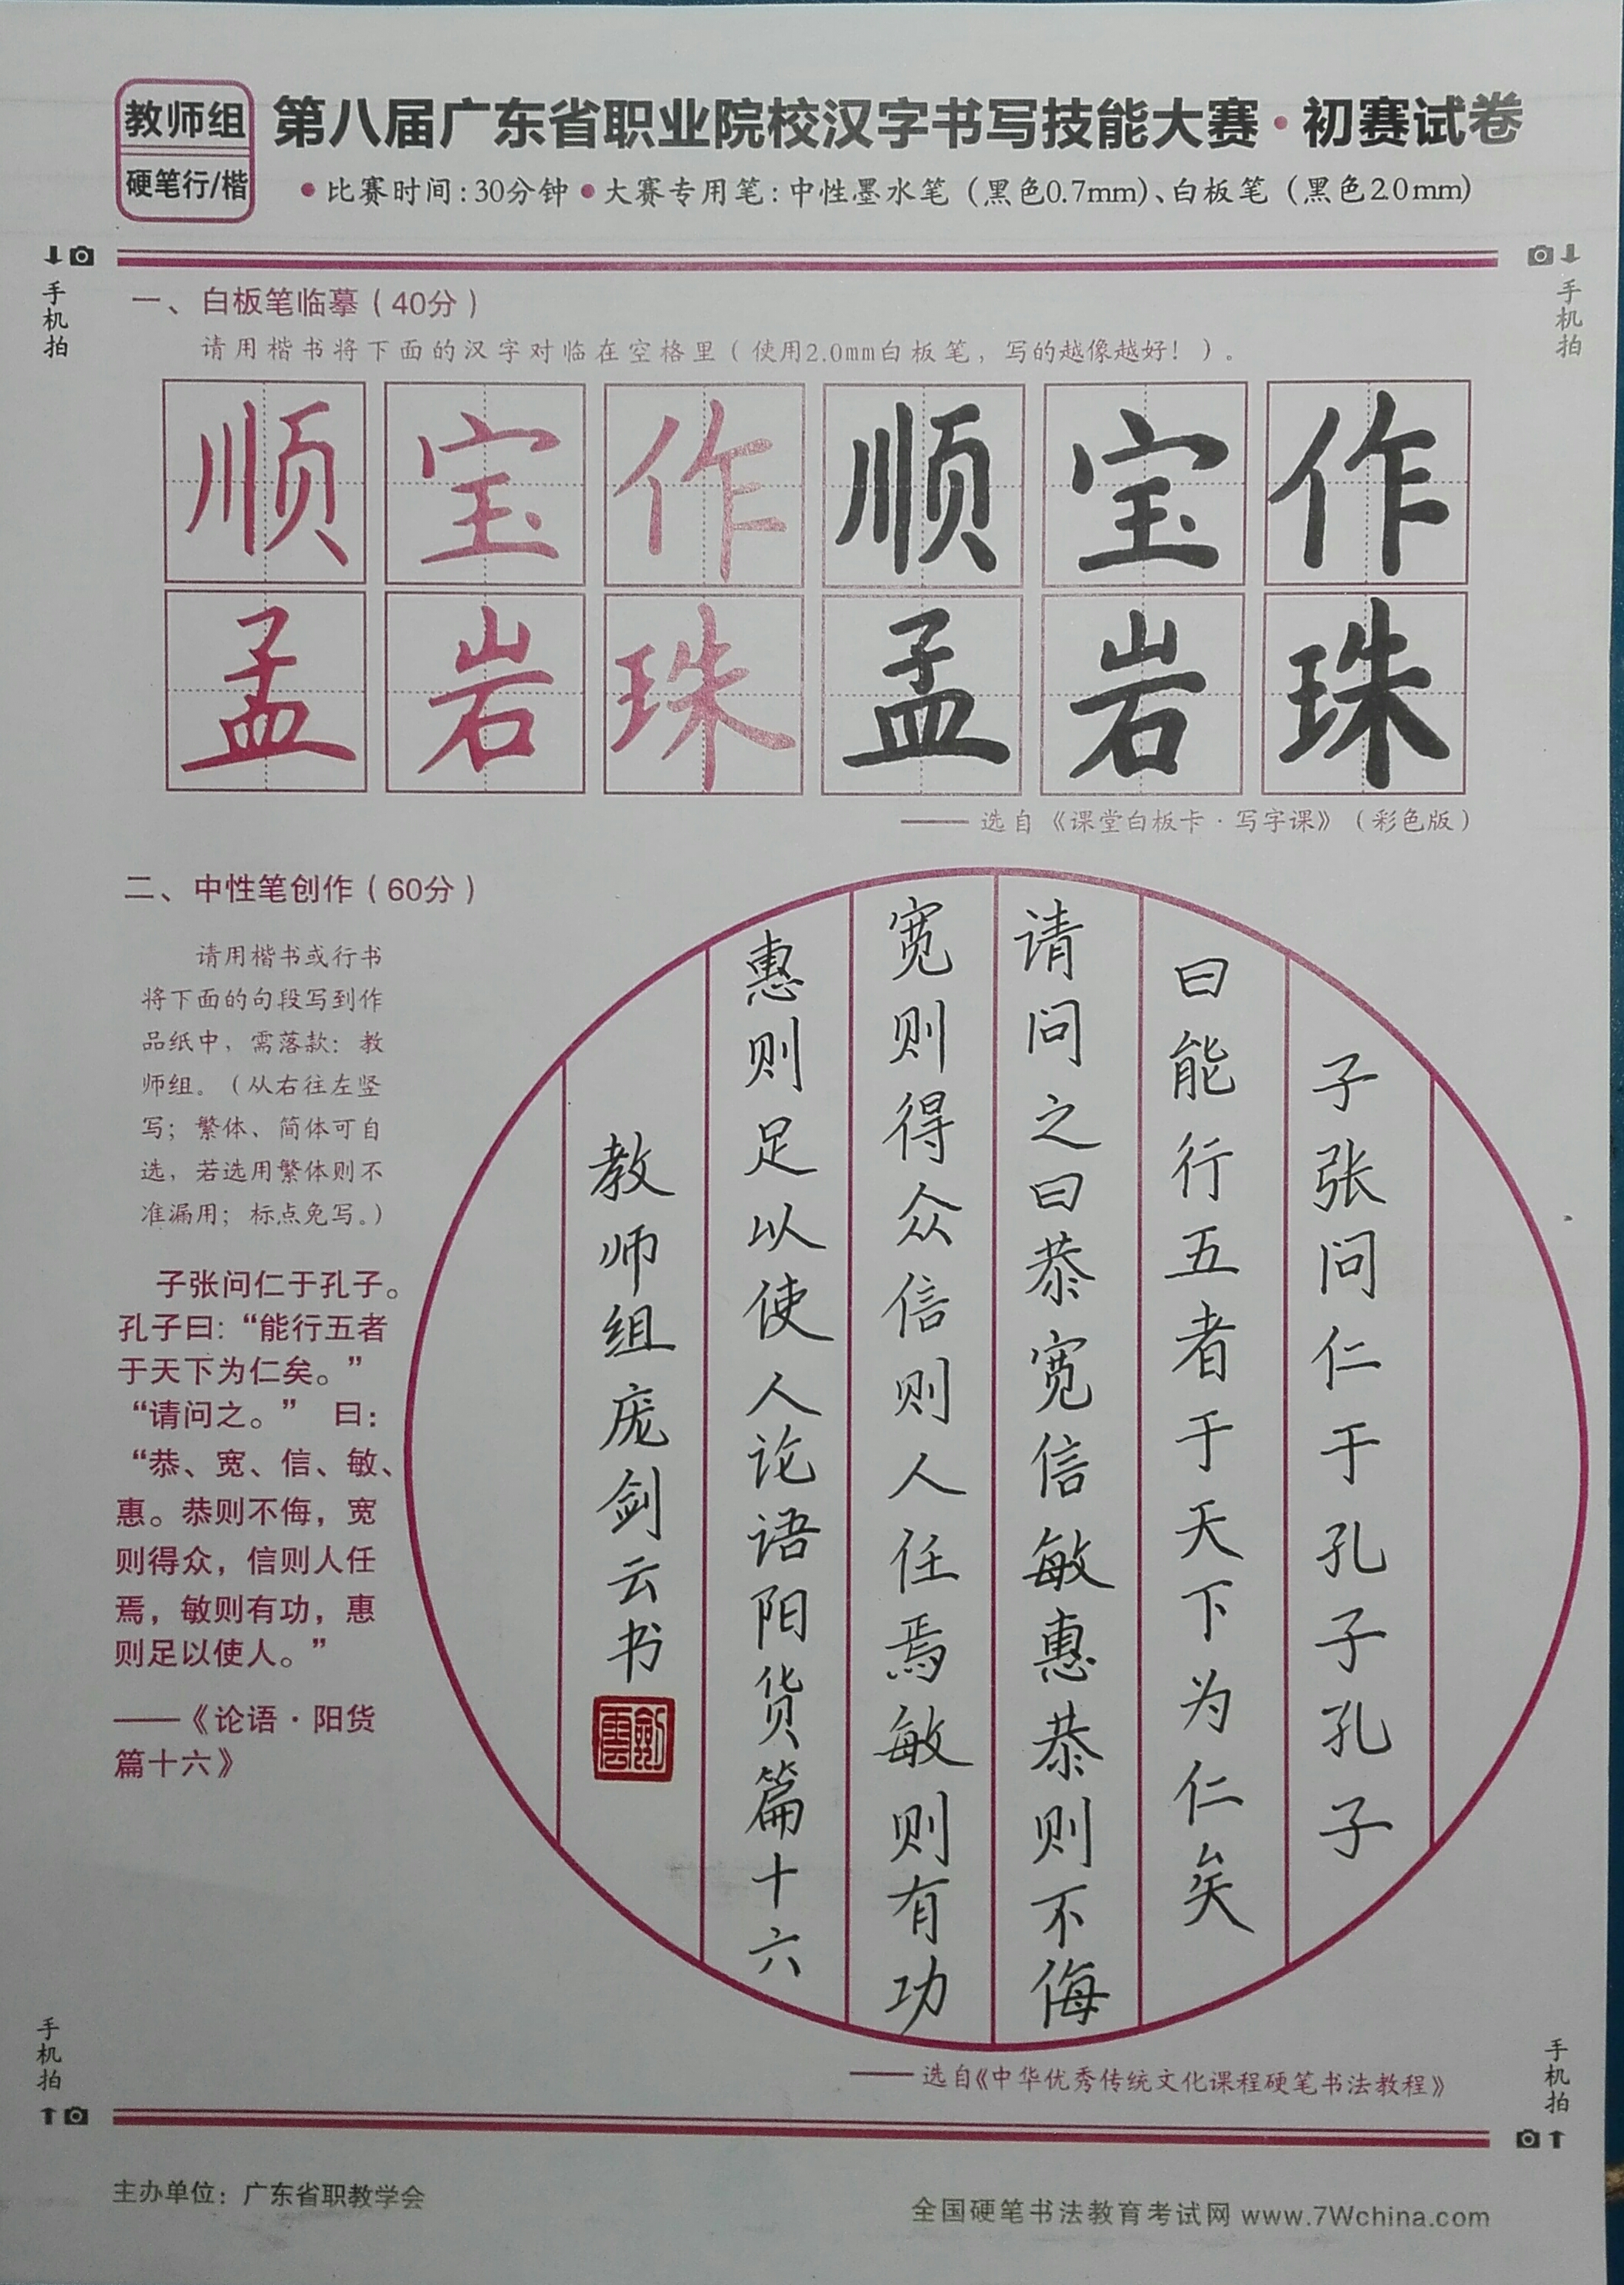 教师组
硬笔行/楷
第八届广东省职业院校汉字书写技能大赛·初赛试卷
●比赛时间:30分钟●大赛专用笔:中性墨水笔(黑色0.7mm)、白板笔(黑色2.0mm)
手机拍
手机拍
一、白板笔临摹(40分)
请用楷书将下面的汉字对临在空格里(使用2.0mm白板笔,写的越像越好!)。
顺宝作顺宝作
孟岩珠孟岩珠
——选自《课堂白板卡·写字课》(彩色版)
二、中性笔创作(60分)
请用楷书或行书
将下面的句段写到作
品纸中,需落款:教
师组。(从右往左竖
写;繁体、简体可自
选,若选用繁体则不
准漏用;标点免写。)
子张问仁于孔子。
孔子曰:“能行五者
于天下为仁矣。”
“请问之。” 曰:
“恭、宽、信、敏、
惠。恭则不侮,宽
则得众,信则人任
焉,敏则有功,惠
则足以使人。”
——《论语·阳货
篇十六》
子张问仁于孔子孔子
曰能行五者于天下为仁矣
请问之曰恭宽信敏惠恭则不侮
宽则得众信则人任焉敏则有功
惠则足以使人论语阳货篇十六
教师组庞剑云书
劍雲
——选自《中华优秀传统文化课程硬笔书法教程》
手机拍
手机拍
主办单位:广东省职教学会
全国硬笔书法教育考试网 www.7Wchina.com